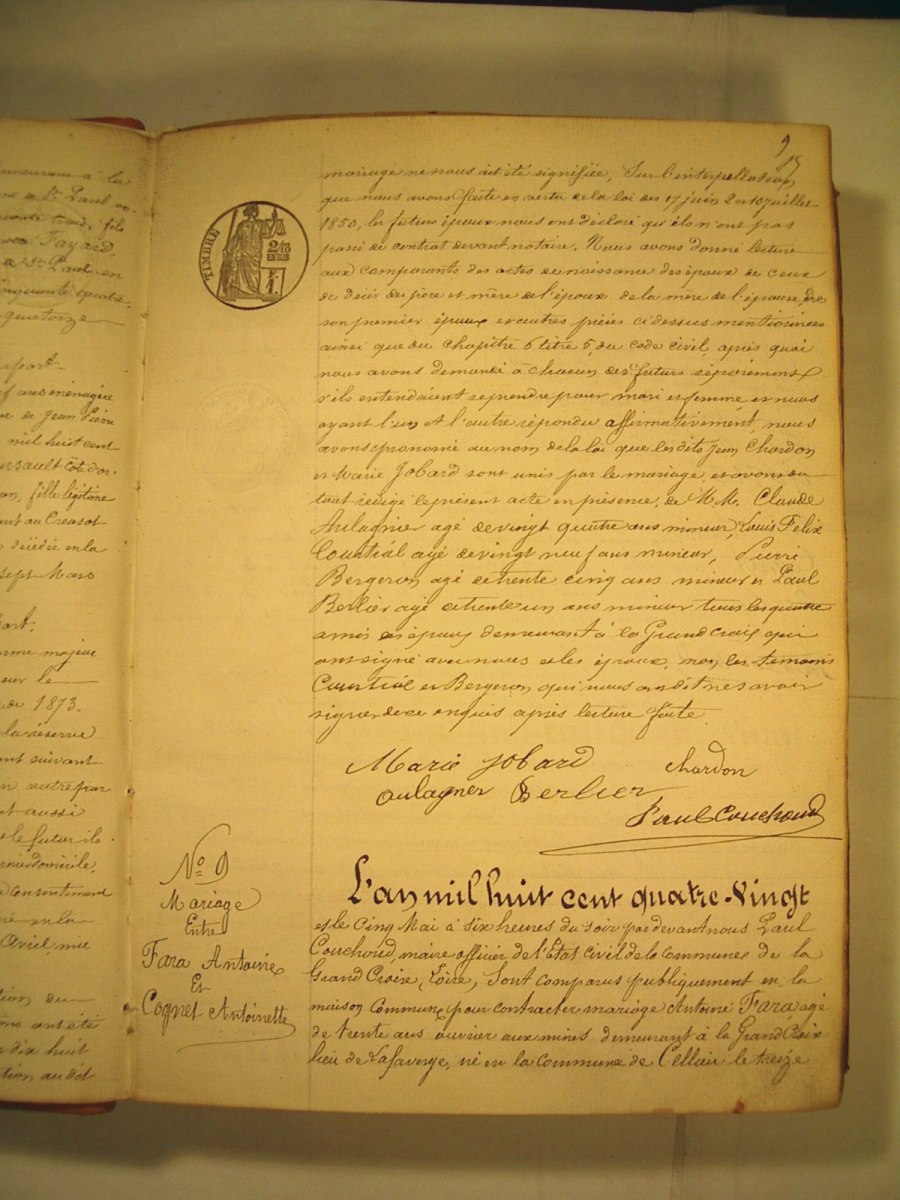 mennan à la
me a St Paul
fils
Fayard,
a St Paul en
inquante quatre
quatorze
part.
ans ménagère
de Jean Pierre
mil huit cent
Côte d'or
fille légitime
ant au Creusot
décédée en la
sept Mars
part.
me majeur
sur le
de 1873.
la réserve
nt suivant
n autre par
t aussi
le futur
domicile.
consentement
en la
Avril, mil
tion du
ont été
dix huit
tion audit
9
15
TIMBRE
2/10 EN SUS
F.
1.
mariage ne nous ait été signifiée, Sur l'interpellation
que nous avons faite en vertu de la loi des 17 juin 2 et 10 juillet
1850, les futurs époux nous ont déclaré qu'ils n'ont pas
passé de contrat devant notaire. Nous avons donné lecture
aux comparants des actes de naissance des époux de ceux
de décès des père et mère de l'époux de la mère de l'épouse, de
son premier époux et autres pièces ci dessus mentionnées
ainsi que du chapitre 6 titre 5, du code civil, après quoi
nous avons demandé a chacun des futurs séparement
s'ils entendaient se prendre pour mari et femme, et nous
ayant l'un et l'autre répondu affirmativement, nous
avons prononcé au nom de la loi que les dits Jean Chardon
et Marie Jobard sont unis par le mariage et avons du
tout rédigé le présent acte en présence, de M M. Claude
Aulagnier agé de vingt quatre ans mineur, Louis Felix
Courtial agé de vingt neuf ans mineur, Pierre
Bergeron agé de trente cinq ans mineur et Paul
Berlier agé de trente un ans mineur tous les quatre
amis des époux demeurant à la Grand croix qui
ont signé avec nous et les époux, non les temoins
Courtial et Bergeron qui nous ont dit ne savoir
signer de ce enquis après lecture faite.
Marie Jobard chardon
aulagner Berlier
Paul Couchoud
No 9
Mariage
Entre
Fara Antoine
Et
Cognet Antoinette
L'an mil huit cent quatre-Vingt
et le Cinq Mai à six heures du soir par devant nous Paul
Couchoud, maire officier de l'État civil de la Commune de la
Grand Croix, Loire, Sont comparus publiquement en la
maison Commune pour contracter mariage Antoine Fara agé
de trente ans ouvrier aux mines demeurant à la Grand Croix
lieu de Lafaverge, né en la commune de Cellieu le treize